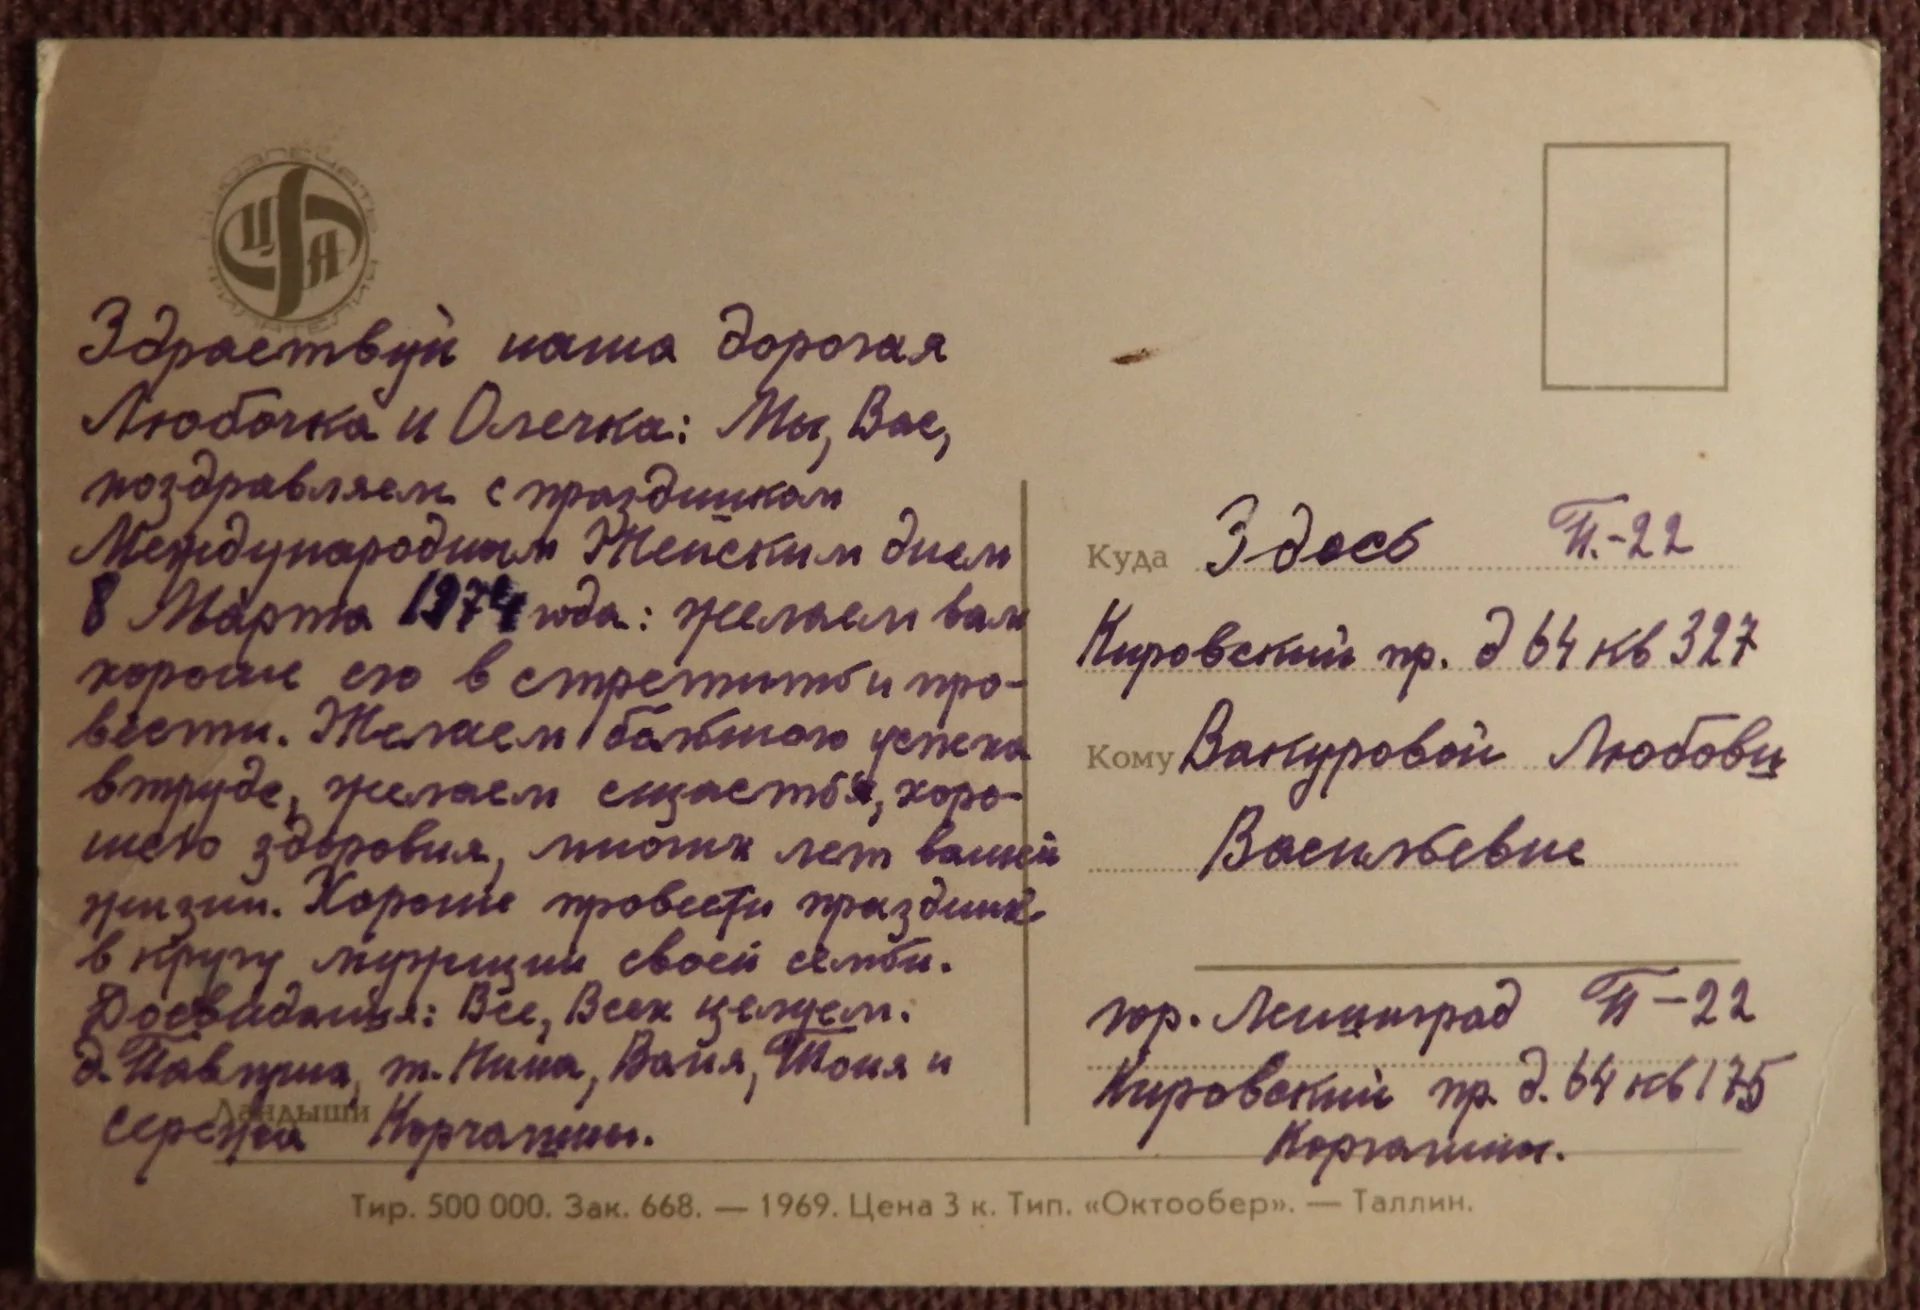 ЦФА
Здраствуй наша дорогая
Любочка и Олечка: Мы, Вас,
поздравляем с праздником
Международным Женским днем
8 Марта 1974 года: желаем вам
хороше его в стретитьи про-
вести. Желаем большого успеха
в труде, желаем сщастья, хоро-
шего здоровия, многих лет вашей
жизни. Хороше провести праздник
в кругу своей семьи.
Досвидания: Все, Всех целуем.
д. Павлуша, т. Нина, Ваня, Тоня и
Ландыши
сережа Корчагины.
Куда Здесь П.-22
Кировский пр. д 64 кв 327
Кому Вакуровой Любови
Васильевне
гор. Ленинград П-22
Кировский пр. д. 64 кв 175
Корчагины.
Тир. 500 000. Зак. 668. — 1969. Цена 3 к. Тип. «Октообер». — Таллин.